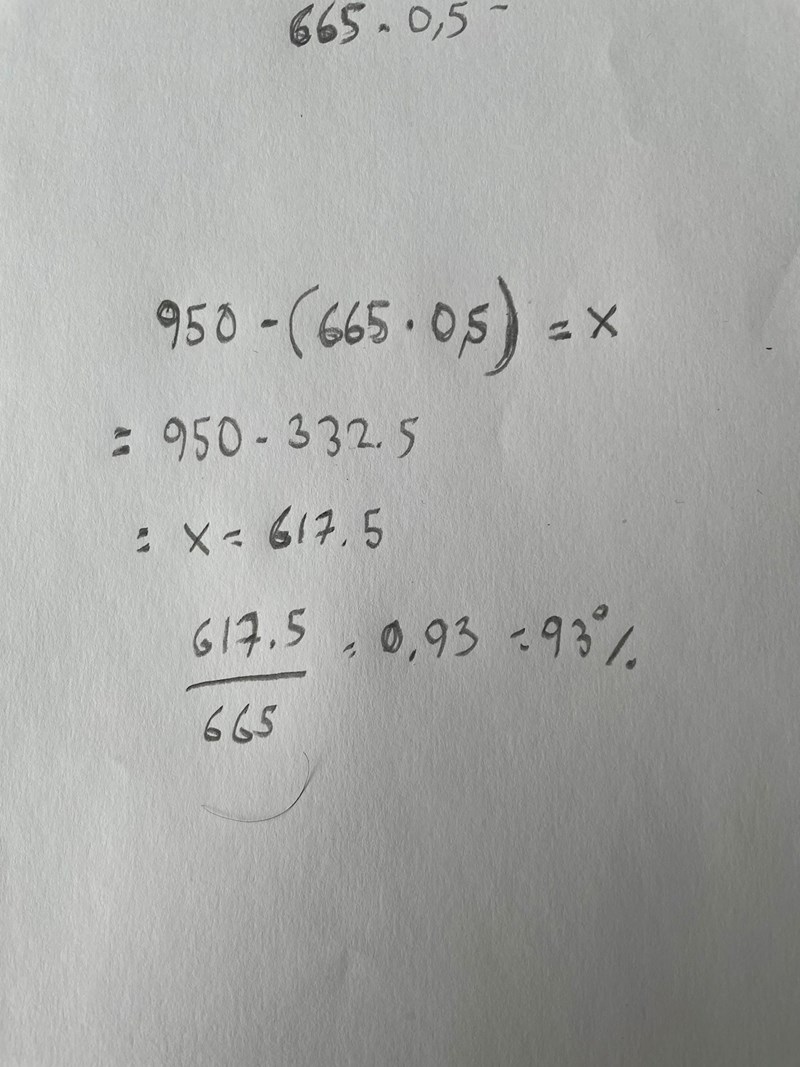 665 . 0,5 -
950 - (665 . 0,5) = x
= 950 - 332.5
= x = 617.5
617.5 = 0.93 = 93%
665